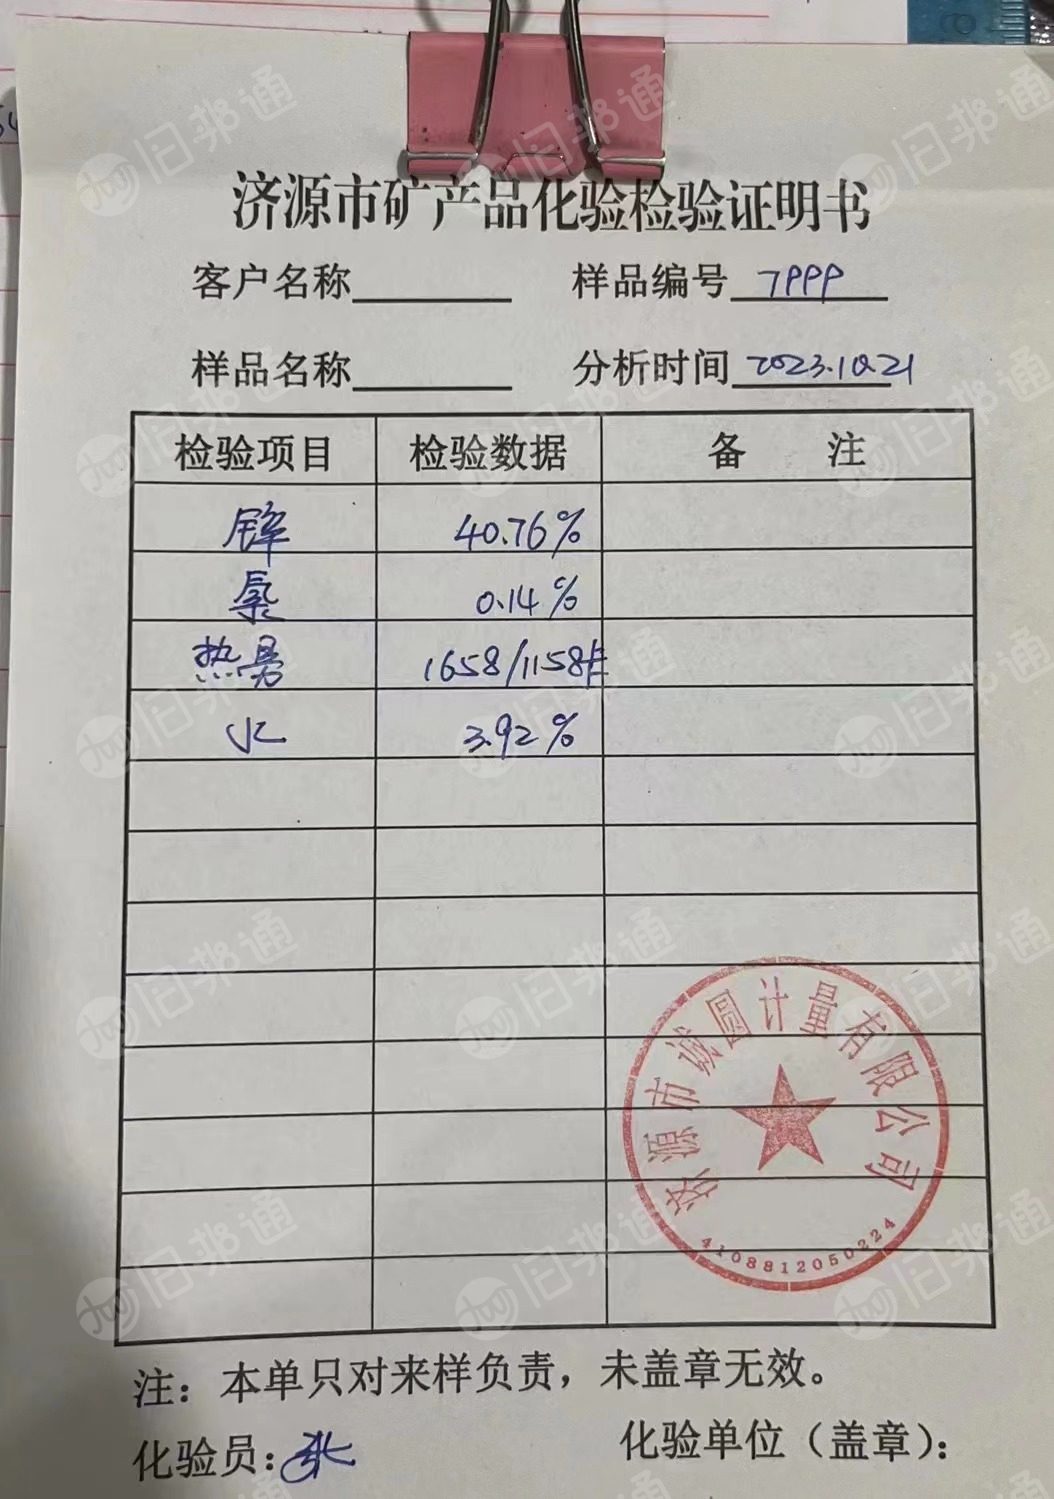 济源市矿产品化验检验证明书
客户名称 样品编号 7999
样品名称 分析时间 2023.10.21
检验项目 检验数据 备 注
锌 40.76%
氯 0.14%
热量 1658/1158卡
水 3.92%
济源市诚圆计量有限公司
4108812050224
注：本单只对来样负责，未盖章无效。
化验员：张
化验单位（盖章）：
旧邦通